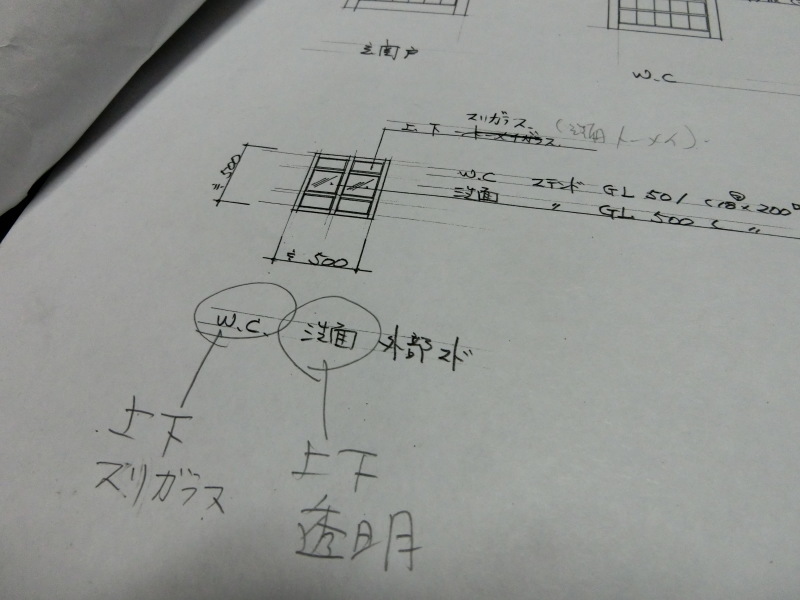 玄関戸
W.C
スリガラス
上下 トーメイガラス (洗面トーメイ)
W.C ステンド GL 501
洗面 〃 GL 500
≒500
≒500
W.C. 洗面 外部マド
上下
スリガラス
上下
透明